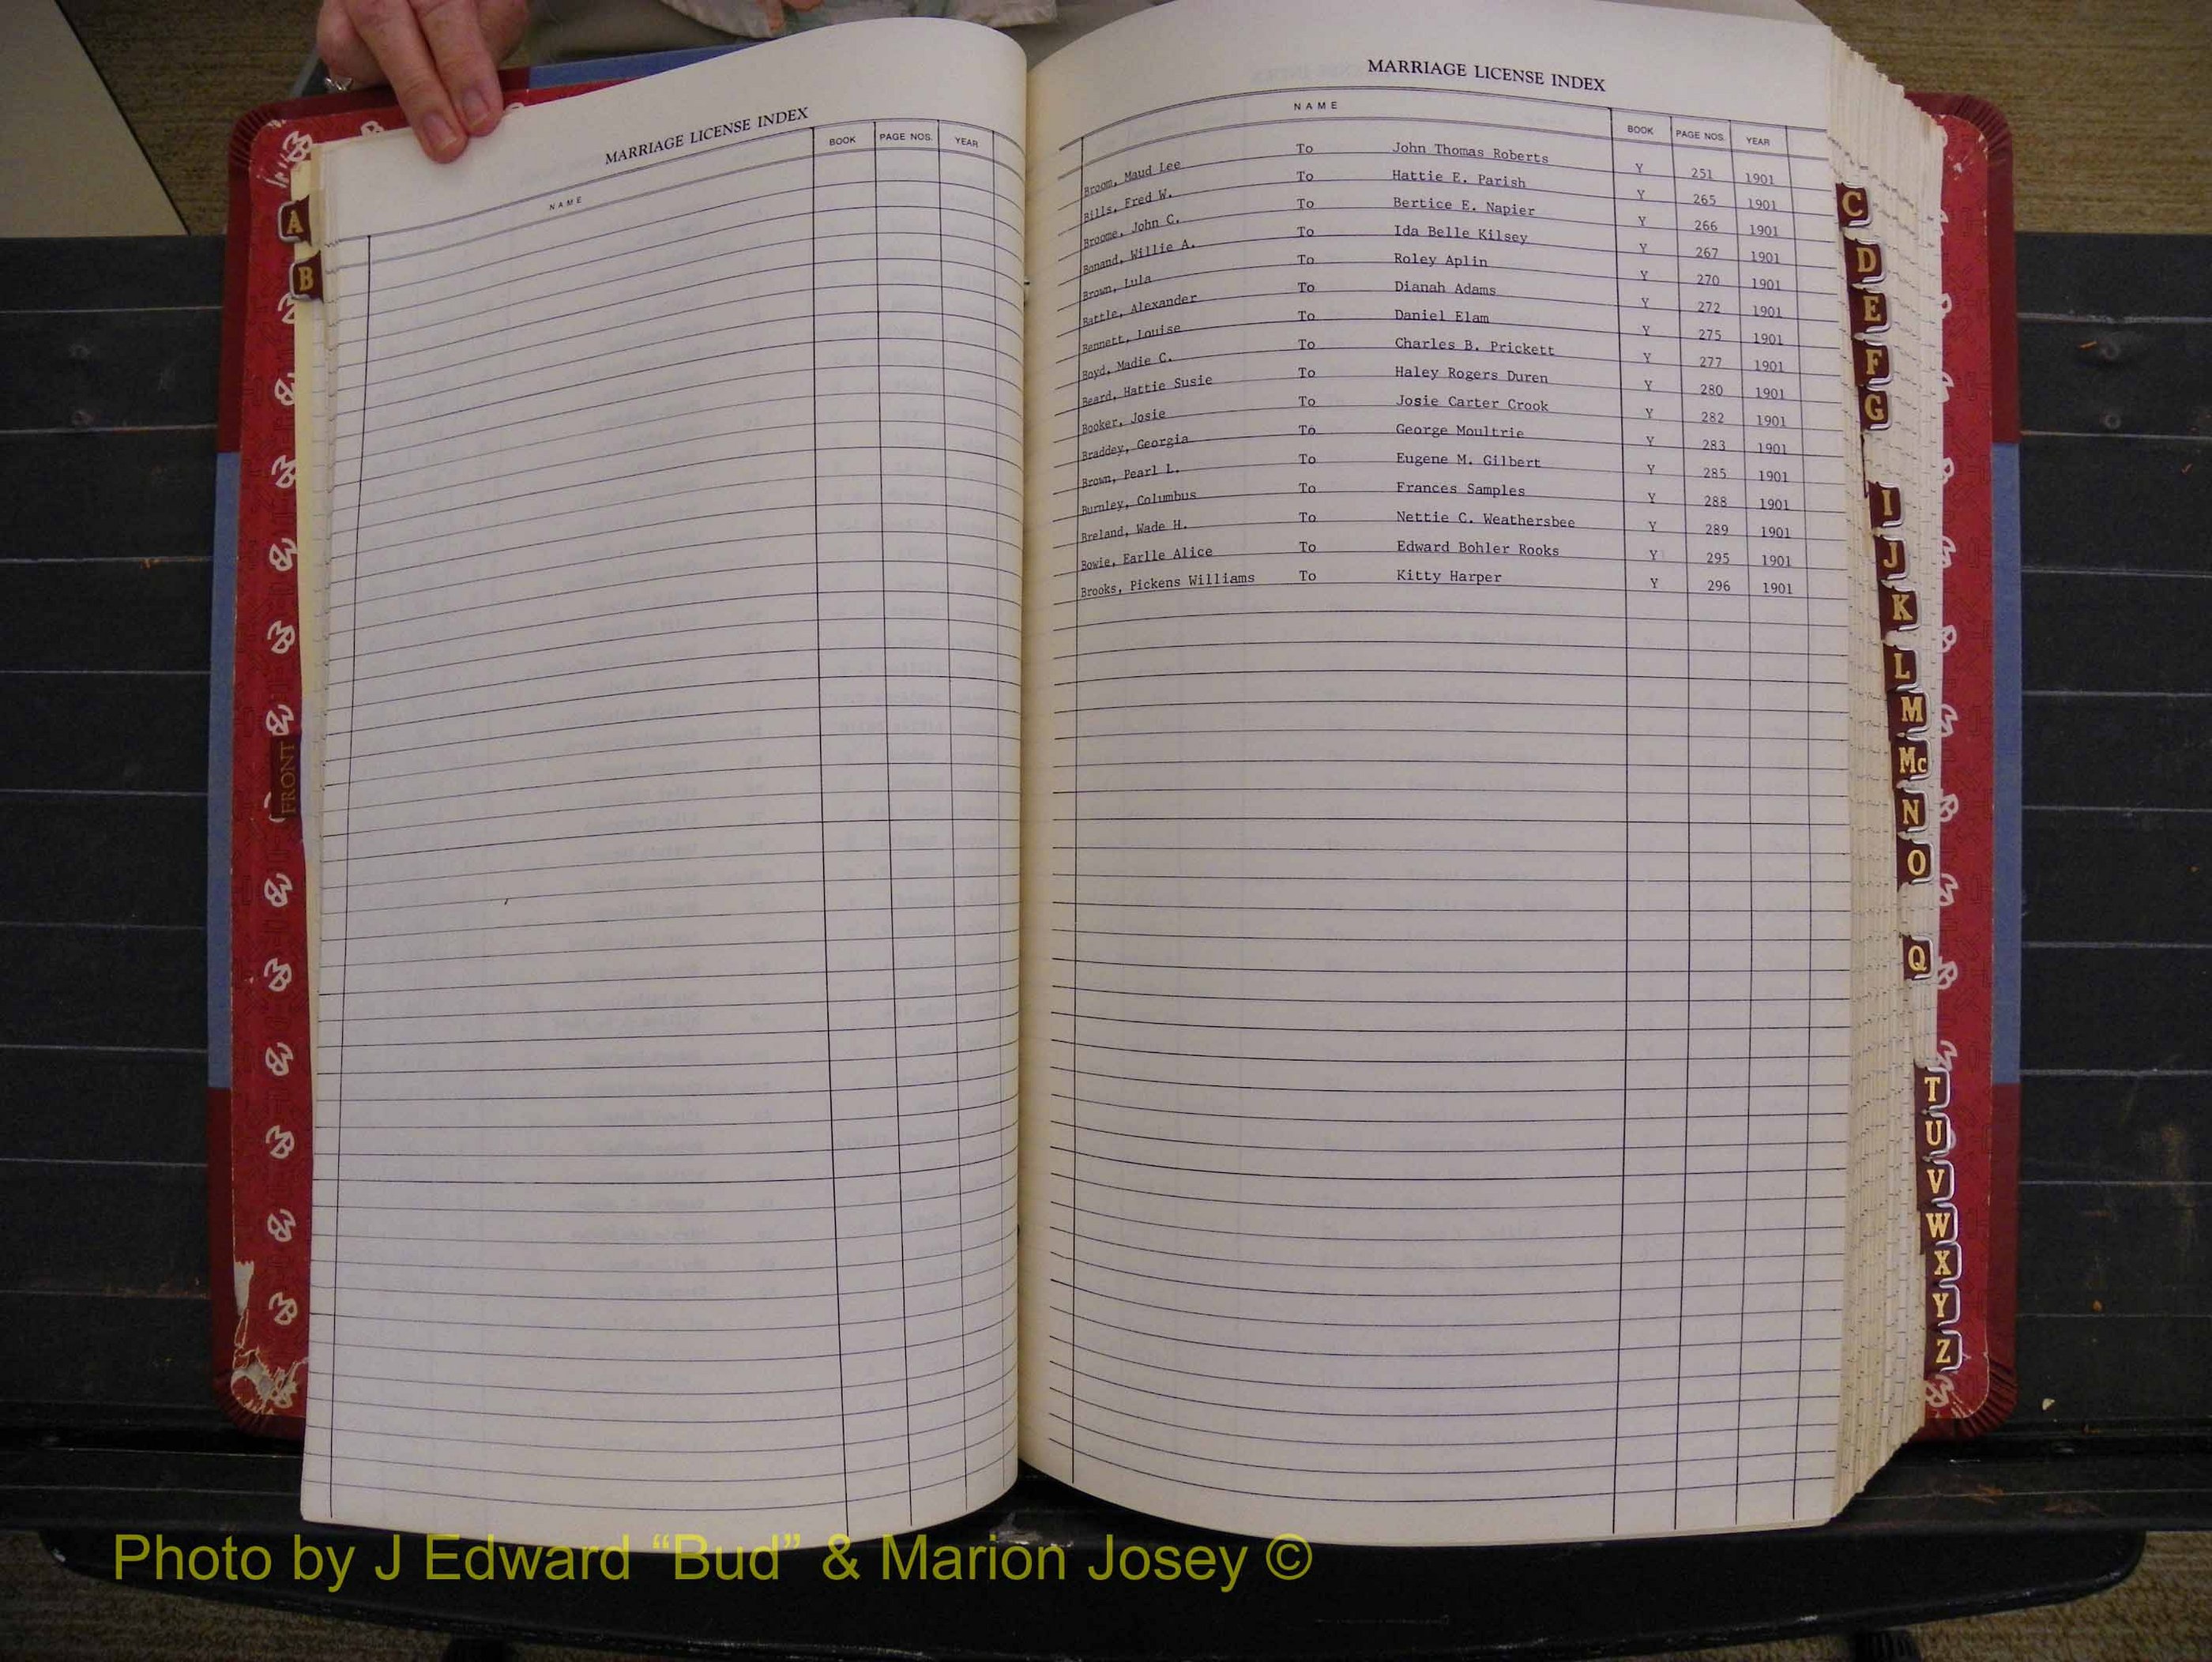 MARRIAGE LICENSE INDEX
NAME BOOK PAGE NOS. YEAR
A
B
FRONT
MARRIAGE LICENSE INDEX
NAME BOOK PAGE NOS. YEAR
Broom, Maud Lee To John Thomas Roberts Y 251 1901
Bills, Fred W. To Hattie E. Parish Y 265 1901
Broome, John C. To Bertice E. Napier Y 266 1901
Bonand, Willie A. To Ida Belle Kilsey Y 267 1901
Brown, Lula To Roley Aplin Y 270 1901
Battle, Alexander To Dianah Adams Y 272 1901
Bennett, Louise To Daniel Elam Y 275 1901
Boyd, Madie C. To Charles B. Prickett Y 277 1901
Beard, Hattie Susie To Haley Rogers Duren Y 280 1901
Booker, Josie To Josie Carter Crook Y 282 1901
Braddey, Georgia To George Moultrie Y 283 1901
Brown, Pearl L. To Eugene M. Gilbert Y 285 1901
Burnley, Columbus To Frances Samples Y 288 1901
Breland, Wade H. To Nettie C. Weathersbee Y 289 1901
Bowie, Earlle Alice To Edward Bohler Rooks Y 295 1901
Brooks, Pickens Williams To Kitty Harper Y 296 1901
C
D
E
F
G
I
J
K
L
M
Mc
N
O
Q
T
U
V
W
X
Y
Z
Photo by J Edward “Bud” & Marion Josey ©